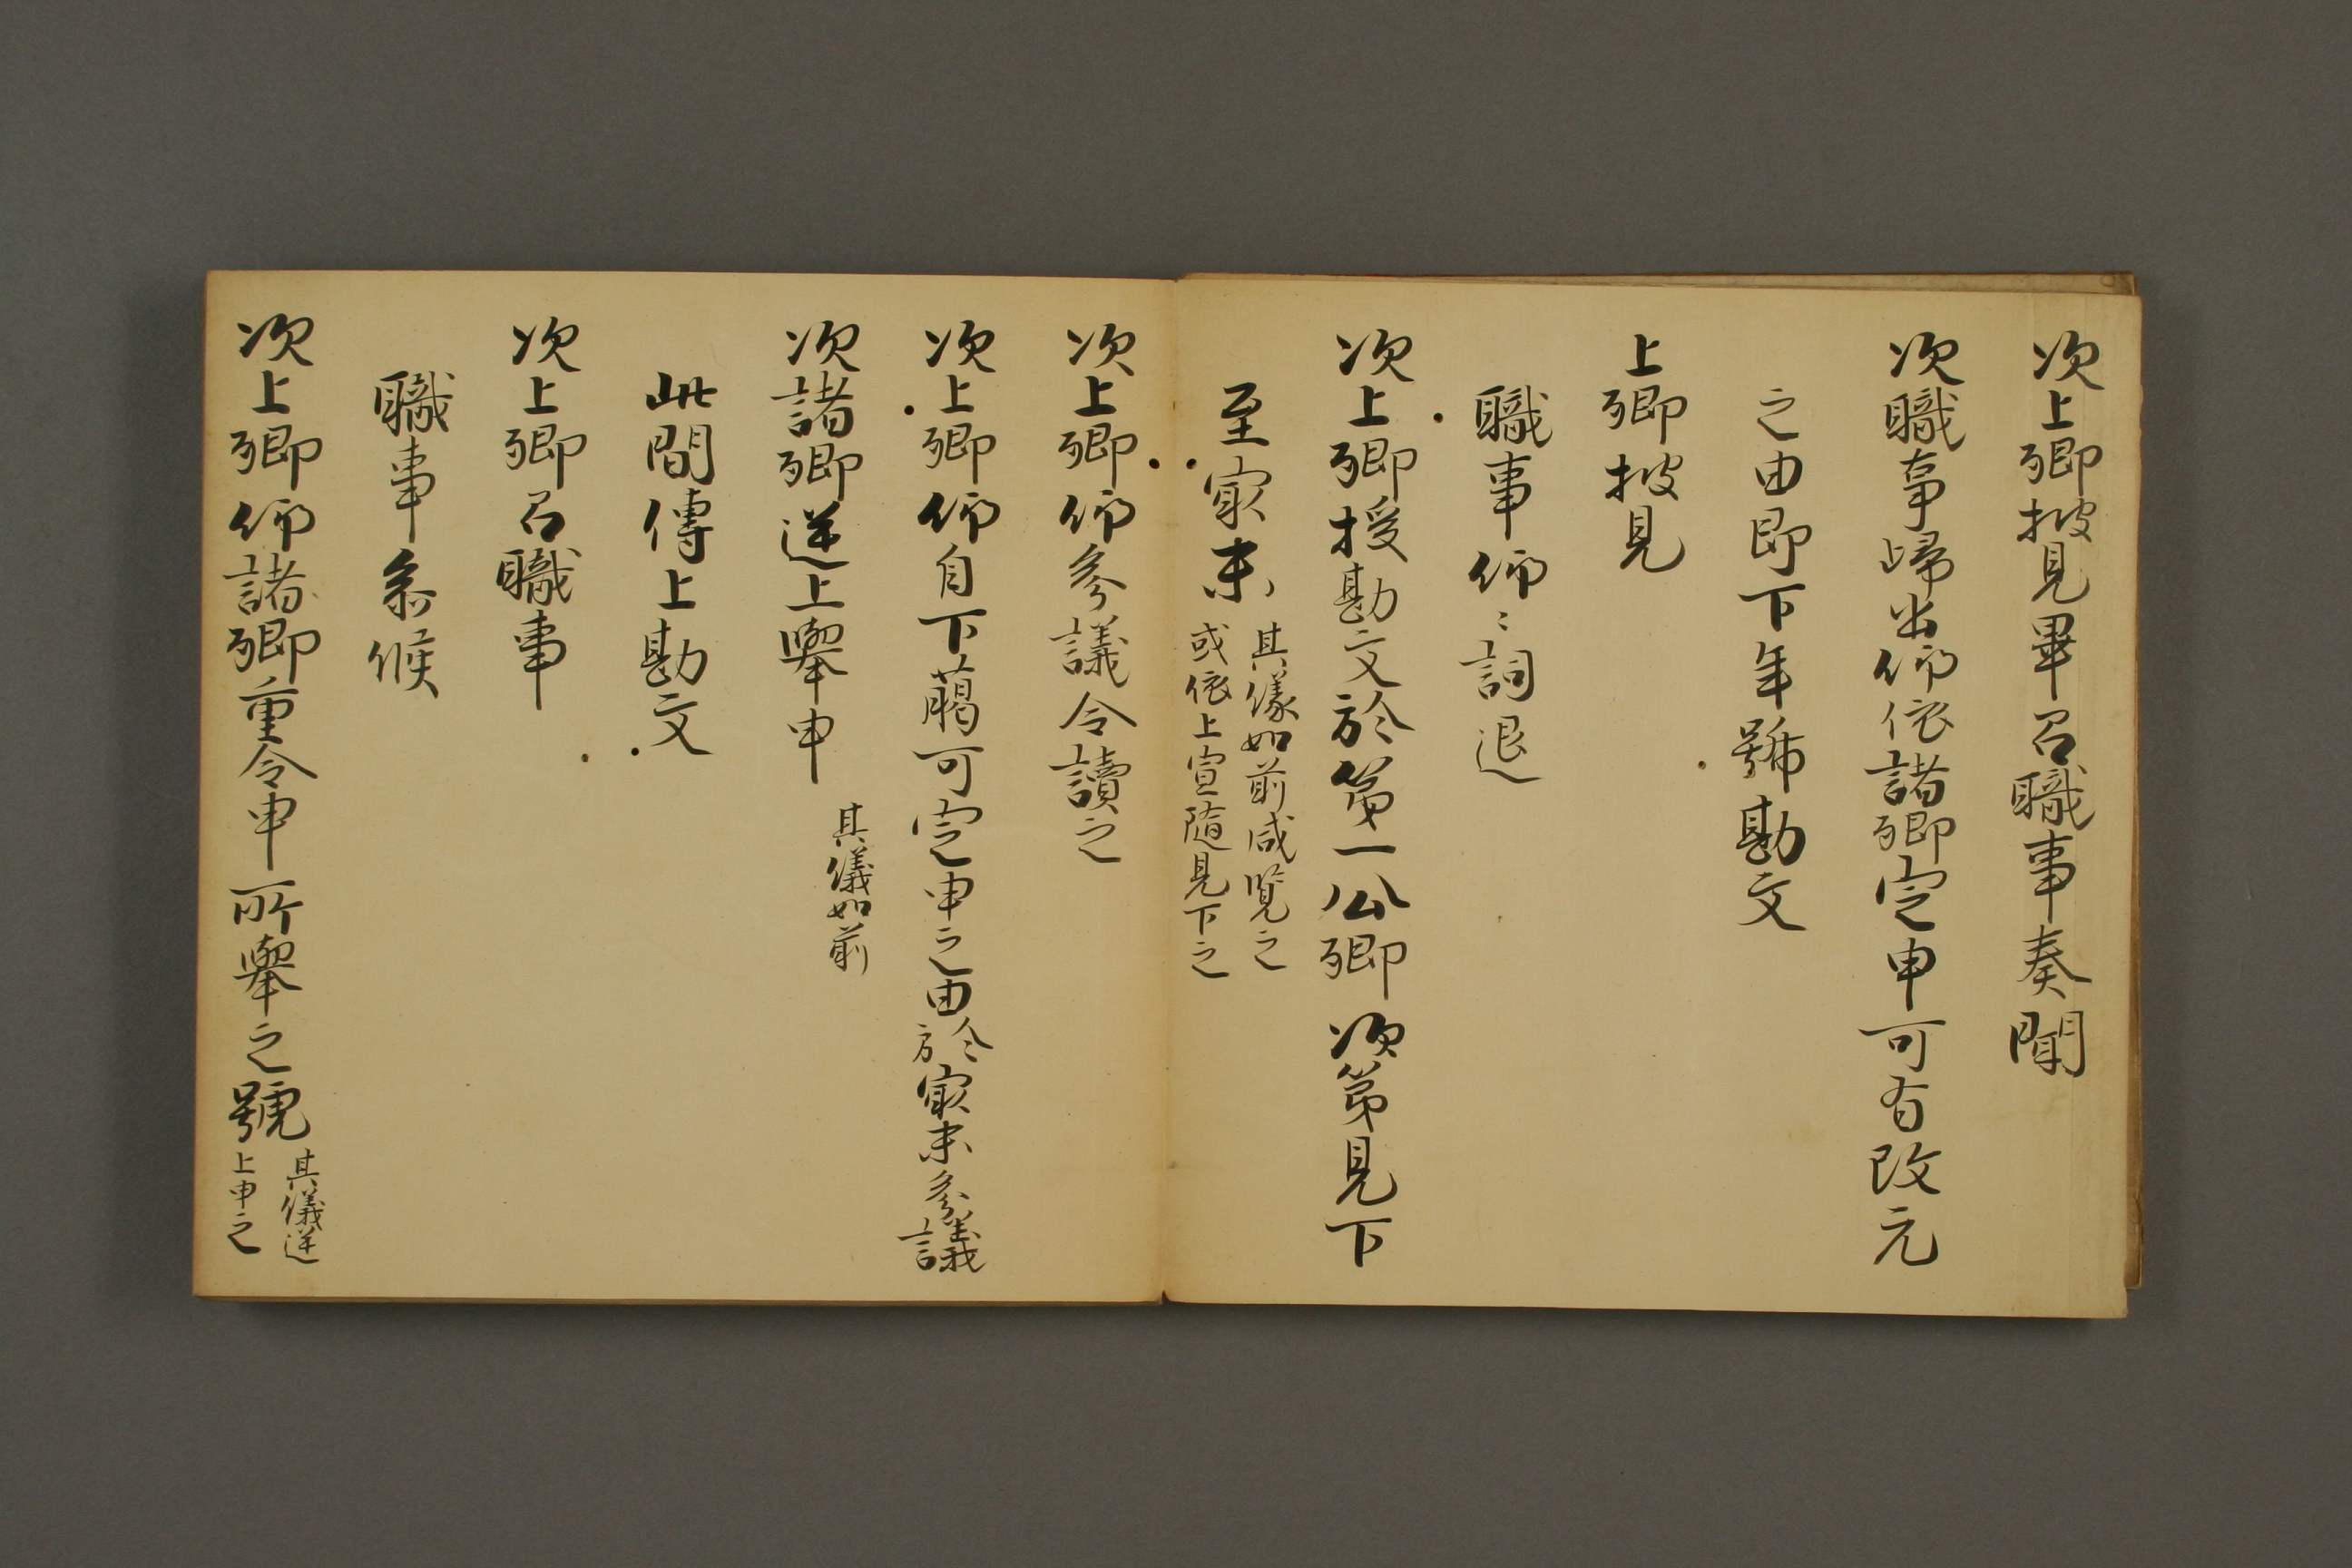 次上卿披見畢召職事奏聞
次職事歸出仰依諸卿定申可有改元
之由即下年號勘文
上卿披見
職事仰〻詞退
次上卿授勘文於第一公卿次第見下
至冣末
其儀如前咸覧之
或依上宣随見下之
次上卿仰參議令讀之
次上卿仰自下﨟可定申之由於冣末參議
次諸卿逆上舉申
其儀如前
此間傳上勘文
次上卿召職事
職事參候
次上卿仰諸卿重令申所舉之號
其儀逆
上申之